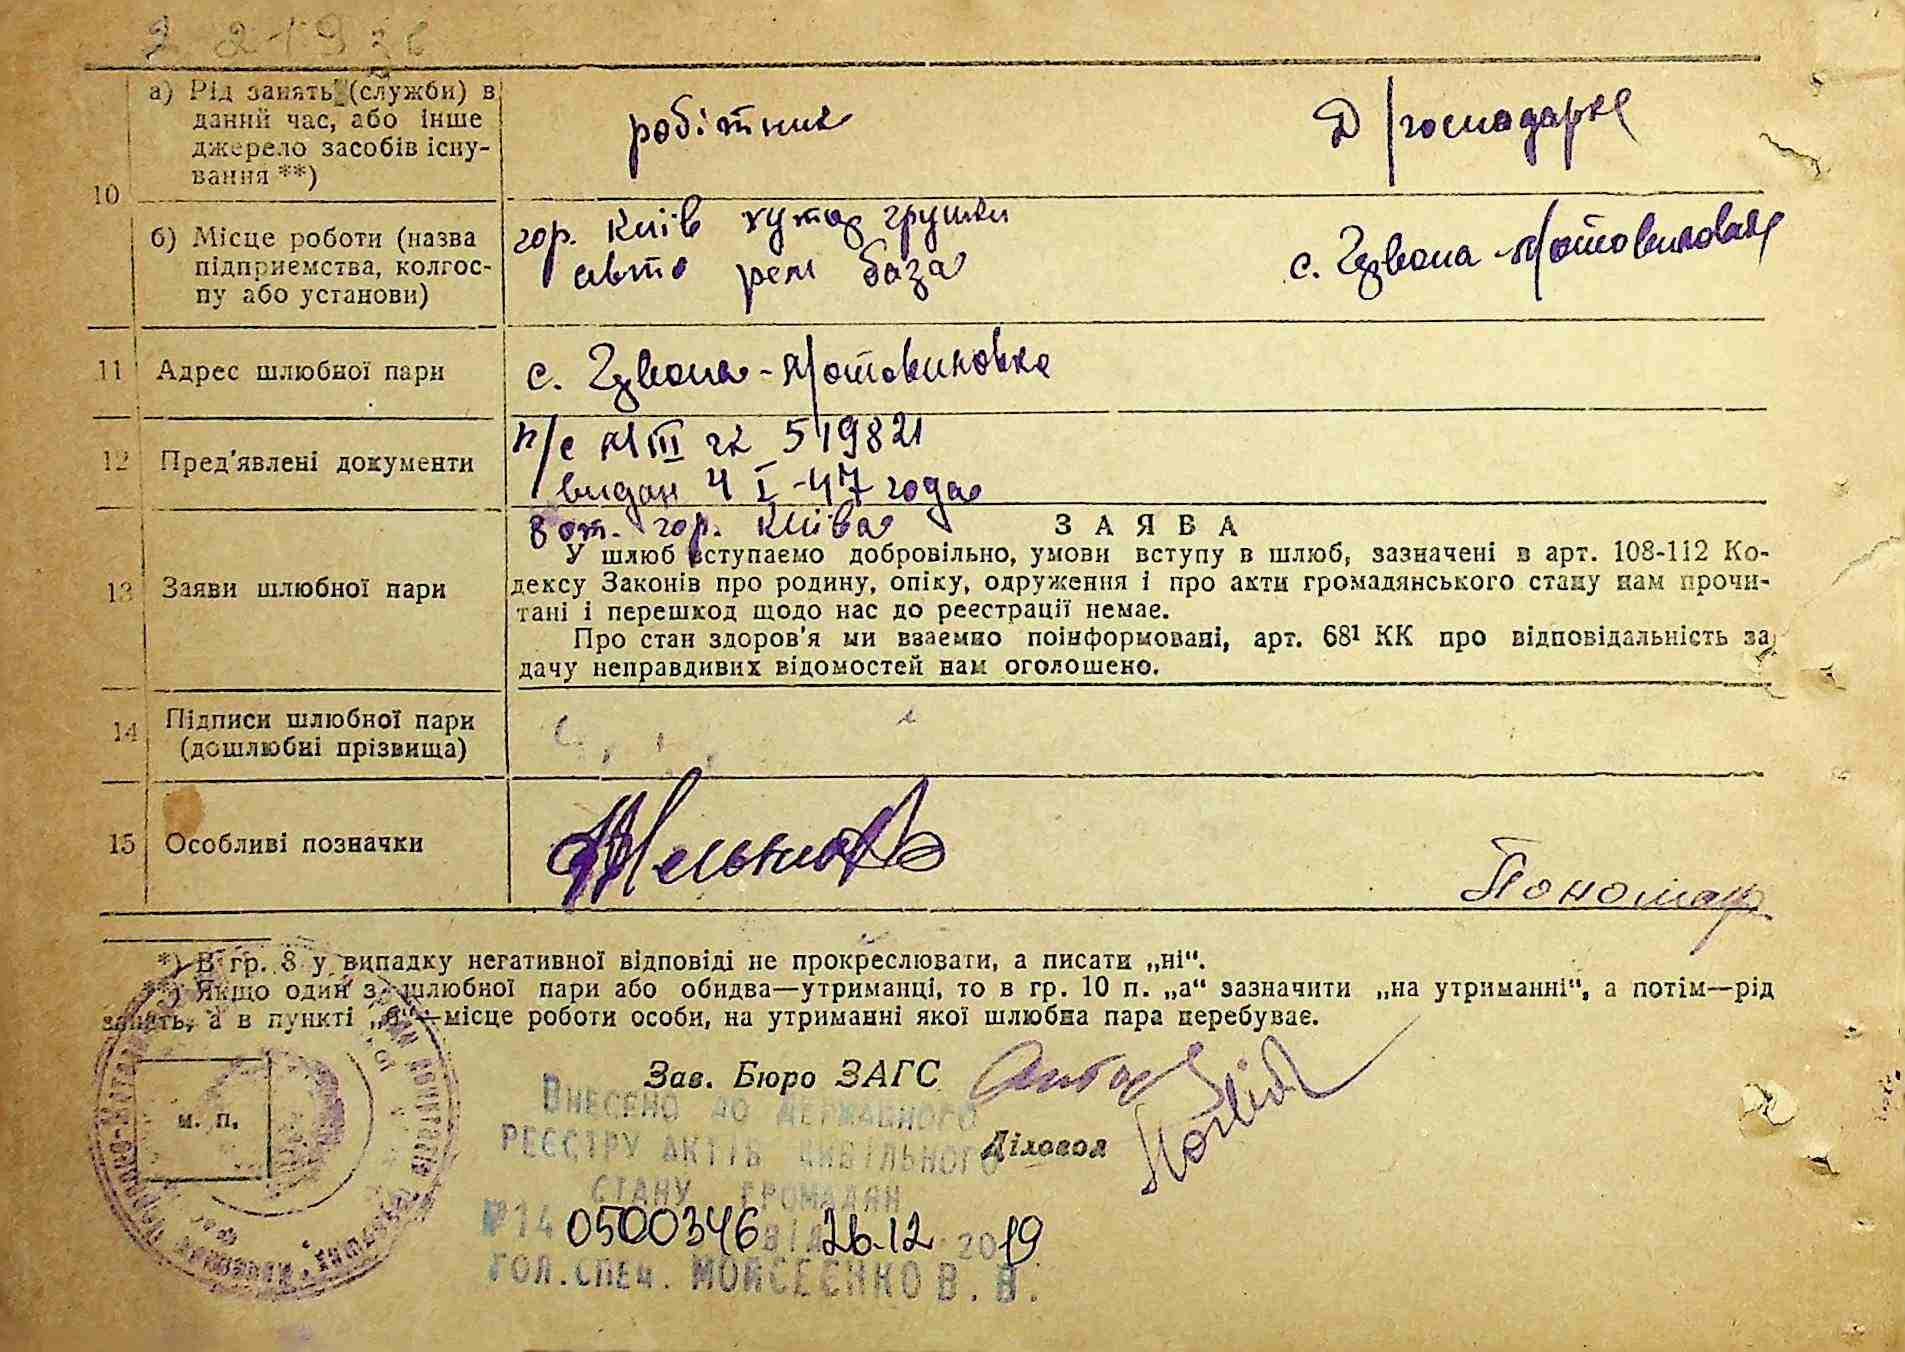 10
а) Рід занять (служби) в
даний час, або інше
джерело засобів існу-
вання **)
робітник
Д/господарка
б) Місце роботи (назва
підприємства, колгос-
пу або установи)
гор. Київ хутор грушки
авто рем база
с. Червона-Мотовиловка
11 Адрес шлюбної пари
с. Червона-Мотовиловка
12 Пред'явлені документи
п/с МIII гк 519821
видан 4 I-47 года
8 от. гор. Київа
13 Заяви шлюбної пари
ЗАЯВА
У шлюб вступаемо добровільно, умови вступу в шлюб, зазначені в арт. 108-112 Ко-
дексу Законів про родину, опіку, одруження і про акти громадянського стану нам прочи-
тані і перешкод щодо нас до реєстрації немає.
Про стан здоров'я ми взаємно поінформовані, арт. 68¹ КК про відповідальність за
дачу неправдивих відомостей нам оголошено.
14 Підписи шлюбної пари
(дошлюбні прізвища)
15 Особливі позначки
Мельник
Пономар
*) В гр. 8 у випадку негативної відповіді не прокреслювати, а писати „ні“.
**) Якщо один з шлюбної пари або обидва—утриманці, то в гр. 10 п. „а“ зазначити „на утриманні“, а потім—рід
занять, а в пункті „б“—місце роботи особи, на утриманні якої шлюбна пара перебуває.
м. п.
Зав. Бюро ЗАГС
Діловод
Внесено до державного
реєстру актів цивільного
стану громадян
№14 0500346 від 26.12 2019
гол.спец. Мойсеєнко В. В.